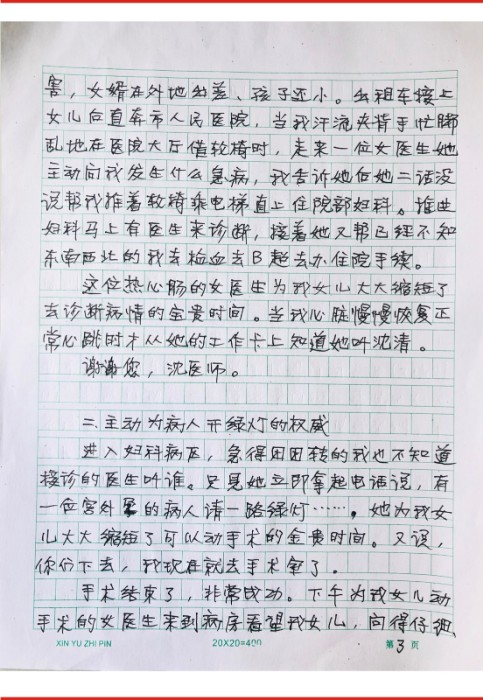 害，女婿在外地出差、孩子还小。出租车接上
女儿向直奔市人民医院，当我汗流夹背手忙脚
乱地在医院大厅借轮椅时，走来一位女医生她
主动问我发生什么急病，我告诉她后她二话没
说帮我推着轮椅乘电梯直上住院部妇科。推进
妇科马上有医生来诊断，接着她又帮已经不知
东南西北的我去检血去B超去办住院手续。
这位热心肠的女医生为我女儿大大缩短了
去诊断病情的金贵时间。当我心脏慢慢恢复正
常心跳时才从她的工作卡上知道她叫沈清。
谢谢您，沈医师。
二.主动为病人开绿灯的权威
进入妇科病区，急得团团转的我也不知道
接诊的医生叫谁。只见她立即拿起电话说，有
一位宫外孕的病人请一路绿灯……。她为我女
儿大大缩短了可以动手术的金贵时间。又说，
你们下去，我现在就去手术室了。
手术结束了，非常成功。下午为我女儿动
手术的女医生来到病房看望我女儿，问得仔细
XIN YU ZHI PIN 20X20=400 第3页